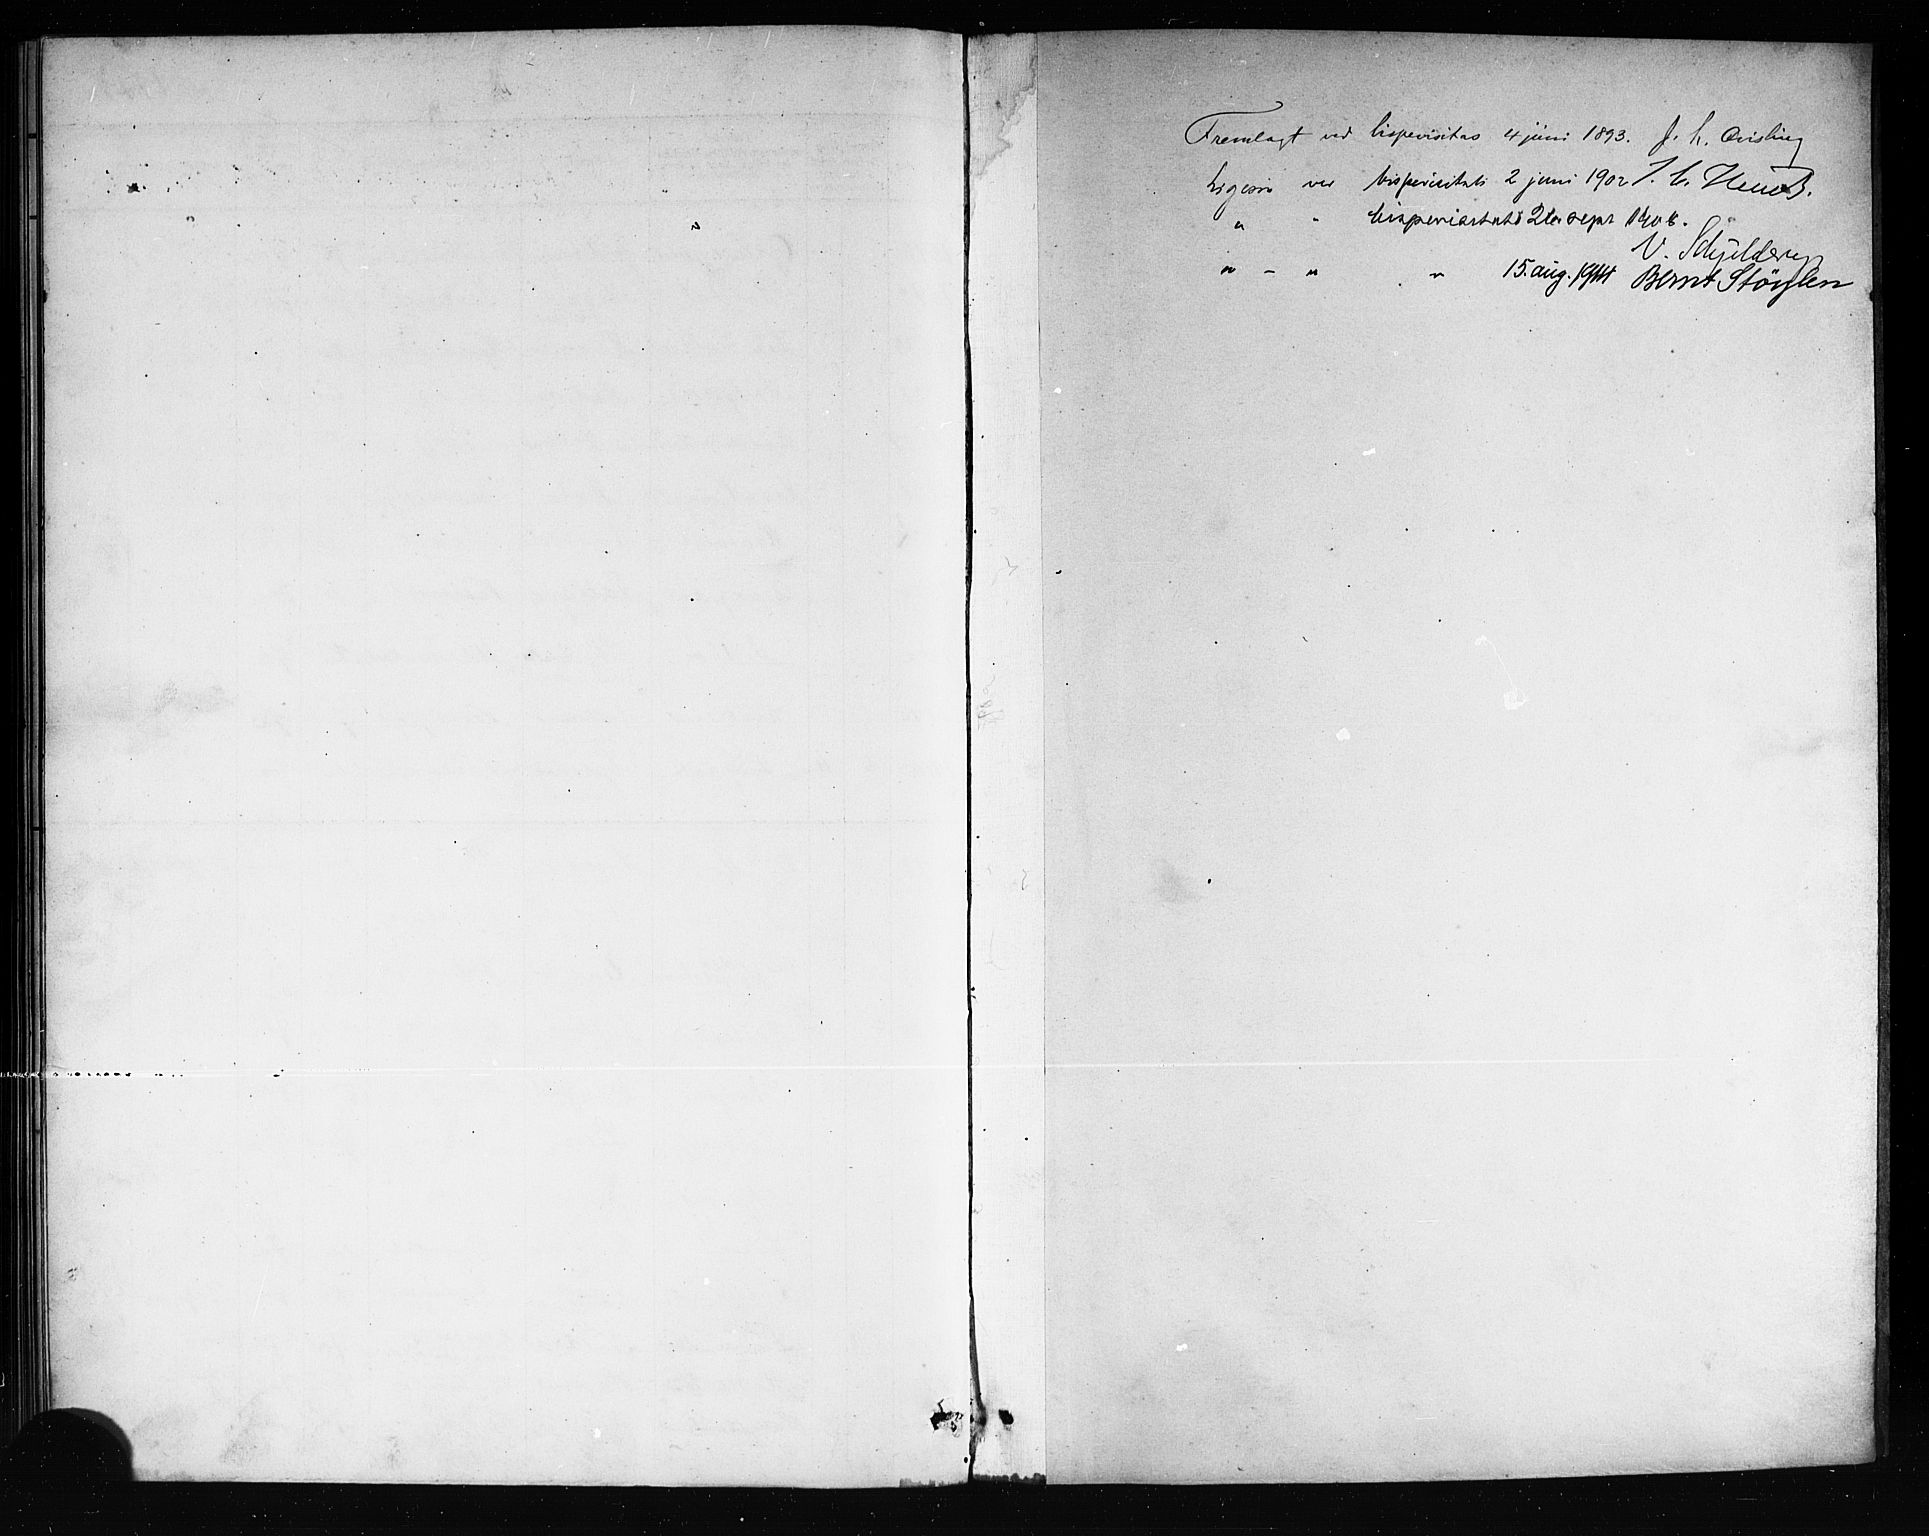 Fremlagt ved bispevisitas 4 juni 1893. J. L. Qvisling
Ligesaa ved bispevisitats 2 juni 1902 J. C. Heuch.
" " bispevisitats sept 190
V. Schjelderup
" - " " 15. aug. 1914 Bernt Støylen